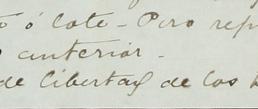 ó lote - Pero rep
anterior -
de libertad de los